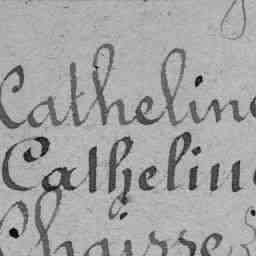 Catheline
Catheline
Chaisse